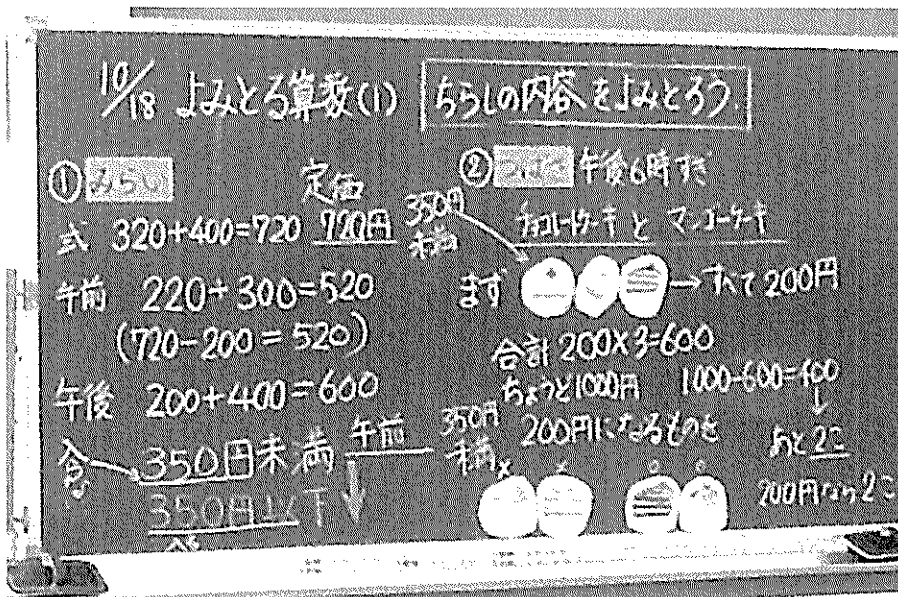 10/18 よみとる算数(1) ちらしの内容をよみとろう。
① みらい
定価
式 320+400=720 720円
午前 220+300=520
(720-200=520)
午後 200+400=600
350円未満 午前
350円以下
② つばさ 午後6時すぎ
チョコレートケーキ と マンゴーケーキ
350円
未満
まず → すべて200円
合計 200×3=600
ちょうど1000円 1000-600=400
↓
350円
200円になるものを
あと2こ
× × ○ ○
200円なら2こ